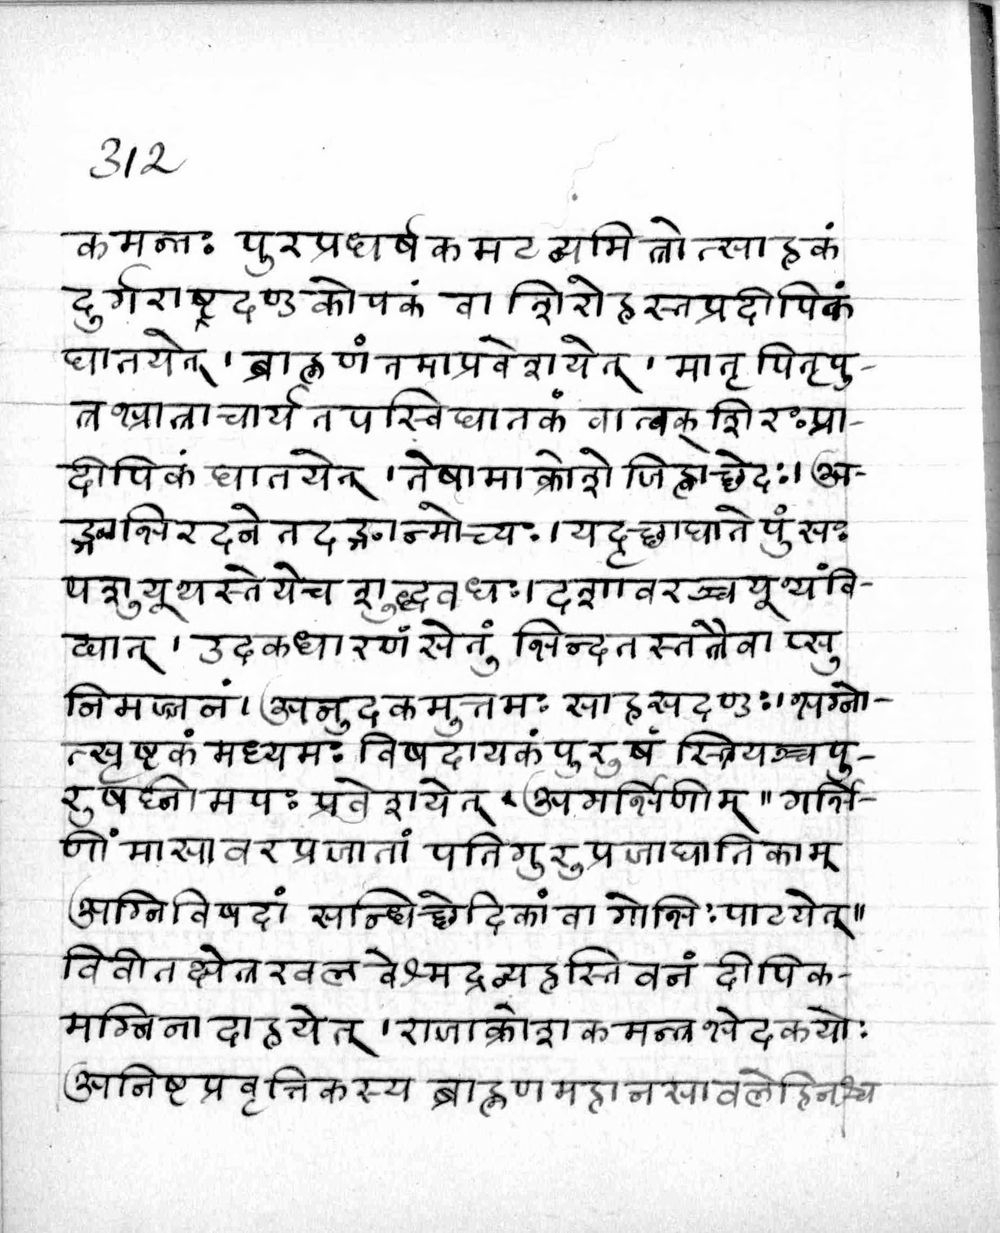 312
कमन्तः पुरप्रधर्षकमटव्यमित्रोत्साहकं
दुर्गराष्ट्रदण्डकोपकं वा शिरोहस्तप्रदीपिकं
घातयेत् । ब्राह्मणं तमाप्रवेशयेत् । मातृपितृपु-
त्रभ्रात्राचार्यतपस्विघातकं वा त्वक्शिरःप्रा-
दीपिकं घातयेत् । तेषामाक्रोशे जिह्वाच्छेदः । अ-
ङ्गाभिरदने तदङ्गान्मोच्यः । यदृच्छाघाते पुंसः
पशुयूथस्तेये च शुद्धवधः । दशावरञ्च यूथ्यं वि-
द्यात् । उदकधारणं सेतुं भिन्दतस्तत्रैवाप्सु
निमज्जनं । अनुदकमुत्तमः साहसदण्डः । भग्नो-
त्सृष्टकं मध्यमः विषदायकं पुरुषं स्त्रियञ्च पु-
रुषघ्नीमपः प्रवेशयेत् अगर्भिणीम् ॥ गर्भि-
णीं मासावरप्रजातां पतिगुरुप्रजाघातिकाम्
अग्निविषदां सन्धिच्छेदिकां वा गोभिः पाटयेत् ॥
विवीतक्षेत्रखलवेश्मद्रव्यहस्तिवनं दीपिक-
मग्निना दाहयेत् । राजाक्रोशकमन्त्रभेदकयोः
अनिष्टप्रवृत्तिकस्य ब्राह्मणमहानसावलेहिनश्च